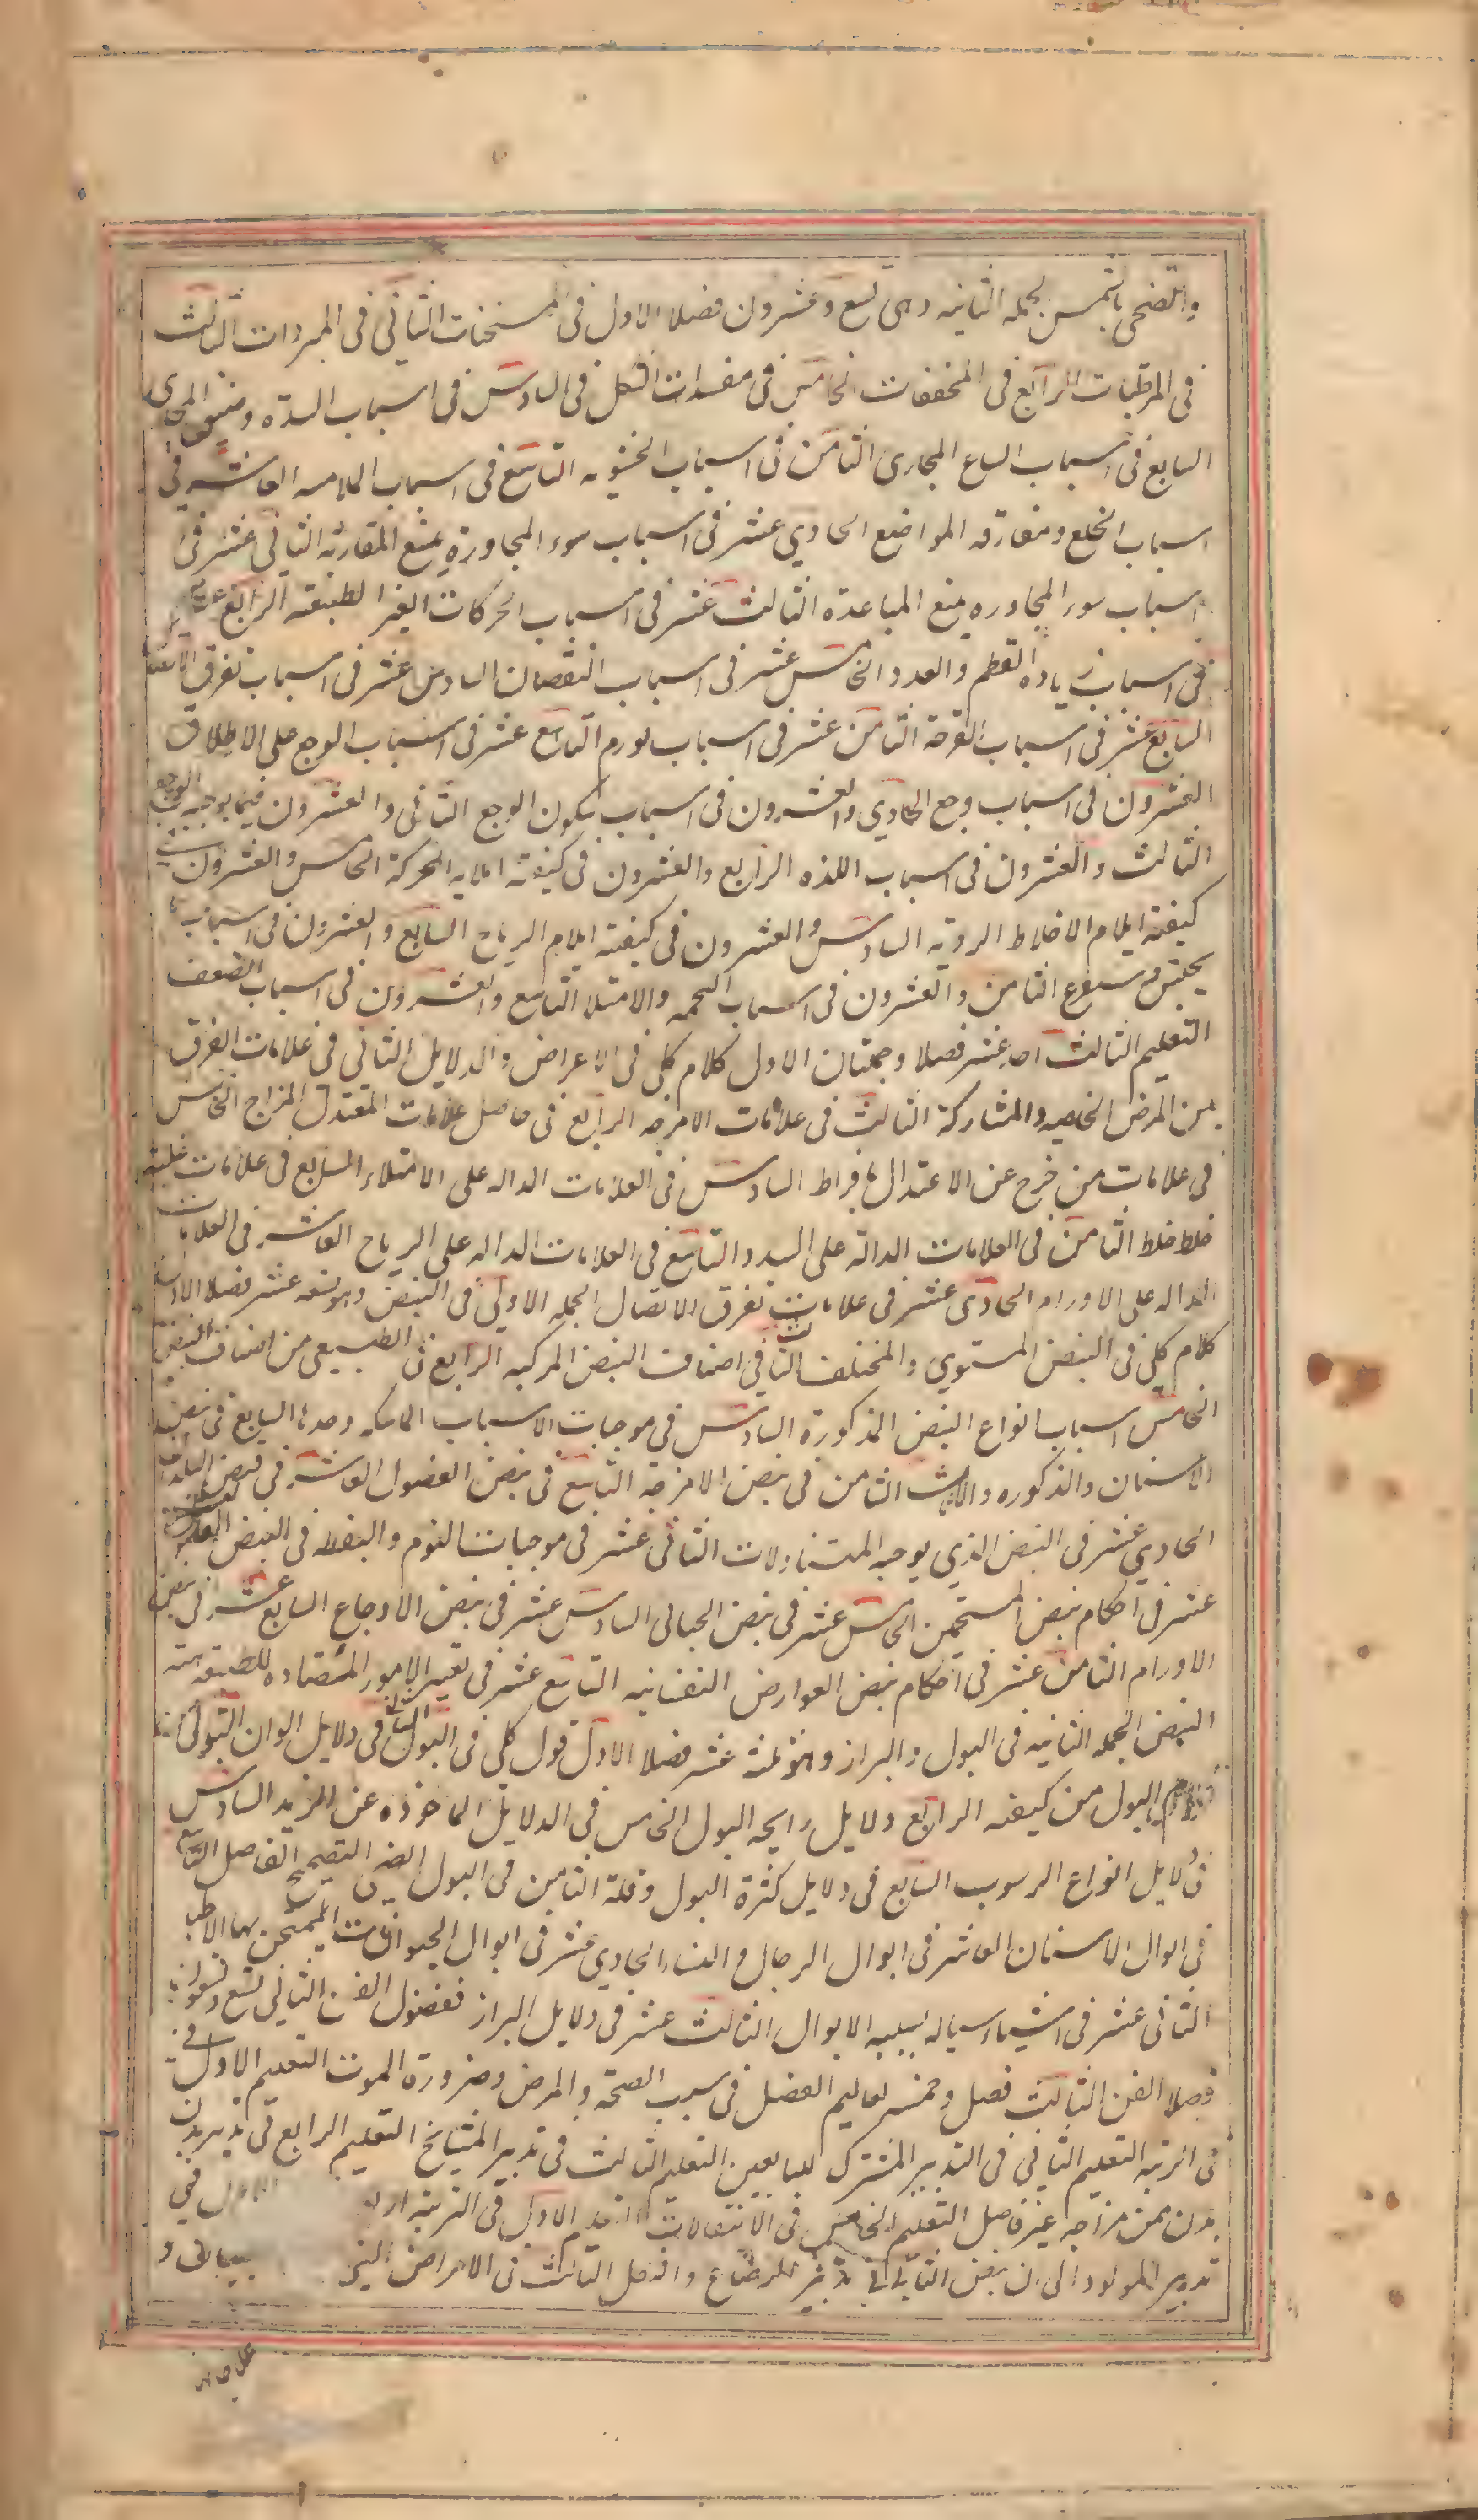 والتضحى بالشمس الجمله الثانيه وهى تسع وعشرون فصلا الاول فى المسخنات الثانى فى المبردات الثالث
فى المرطبات الرابع فى المجففات الخامس فى مفسدات الشكل فى السادس فى اسباب السدة وضيق المجارى
السابع فى اسباب اتساع المجارى الثامن فى اسباب الخشونه التاسع فى اسباب الملاسه العاشر فى
اسباب الخلع ومفارقه المواضع الحادي عشر فى اسباب سوء المجاورة يمنع المقاربه الثانى عشر فى
اسباب سوء المجاوره يمنع المباعدة الثالث عشر فى اسباب الحركات الغير الطبيعه الرابع عشر
فى اسباب زياده العظم والعدد الخامس عشر فى اسباب النقصان السادس عشر فى اسباب تفرق الاتصال
السابع عشر فى اسباب القرحة الثامن عشر فى اسباب لورم التاسع عشر فى اسباب الوجع على الاطلاق
العشرون فى اسباب وجع الحادي والعشرون فى اسباب سكون الوجع الثانى والعشرون فيما يوجبه الوجع
الثالث والعشرون فى اسباب اللذه الرابع والعشرون فى كيفية ايلام الحركة الخامس والعشرون
كيفية ايلام الاخلاط الرديه السادس والعشرون فى كيفية ايلام الرياح السابع والعشرون فى اسباب ما
يحتبس ويستفرغ الثامن والعشرون فى اسباب التخمه والامتلا التاسع والعشرون فى اسباب الضعف
التعليم الثالث احد عشر فصلا وجملتان الاول كلام كلى فى الاعراض والدلايل الثانى فى علامات الفرق
بين المرض الخاصيه والمشاركة الثالث فى علامات الامزجه الرابع فى حاصل علامات المعتدل المزاج الخامس
فى علامات من خرج عن الاعتدال بافراط السادس فى العلامات الداله على الامتلاء السابع فى علامات غلبة
خلط خلط الثامن فى العلامات الدالة على السدد التاسع فى العلامات الداله على الرياح العاشر فى العلامات
الداله على الاورام الحادى عشر فى علامات تفرق الاتصال الجمله الاولى فى النبض وهو تسعه عشر فصلا الاول
كلام كلى فى النبض المستوي والمختلف الثالث فى اصناف النبض المركبه الرابع فى الطبيعى من اصناف النبض
الخامس اسباب انواع النبض المذكورة السادس فى موجبات الاسباب الماسكه وحدها السابع فى نبض
الاسنان والذكوره والاناث الثامن فى نبض الامزجة التاسع فى نبض الفصول العاشر فى نبض البلدان
الحادي عشر فى النبض الذي يوجبه المتناولات الثانى عشر فى موجبات النوم واليقظه فى النبض
عشر فى احكام نبض المستحمين الخامس عشر فى نبض الحبالى السادس عشر فى نبض الاوجاع السابع عشر فى نبض
الاورام الثامن عشر فى احكام نبض العوارض النفسانيه التاسع عشر فى تغير الامور المضاده للطبيعه هيئة
النبض الجمله الثانيه فى البول والبراز وهو ثلثة عشر فصلا الاول قول كلى فى البول الثانى فى دلايل الوان البول
البول من كيفه الرابع دلايل رايحه البول الخامس فى الدلايل الماخوذه عن الزبد السادس
فى دلايل انواع الرسوب السابع فى دلايل كثرة البول وقلة الثامن فى البول النضيج الصحيح الفاضل التاسع
فى ابوال الاسنان العاشر فى ابوال الرجال والنساء الحادي عشر فى ابوال الحيوانات ليمتحن بها الاطبا
الثانى عشر فى اشياء سياله يشبه الابوال الثالث عشر فى دلايل البراز ففصول الفن الثانى تسع وتسعون
فصلا الفن الثالث فصل وخمس تعاليم الفصل فى سبب الصحة والمرض وضرورة الموت التعليم الاول فى
فى التربيه التعليم الثانى فى التدبير المشترك للبالغين التعليم الثالث فى تدبير المشايخ التعليم الرابع فى تدبير بدن
بدن من مزاجه غير فاضل التعليم الخامس فى الانتقالات التعليم الاول فى التربية اربعه الاول فى
تدبير المولود الى ان ينهض الثانى فى تدبير الرضاع والفصل الثالث فى الامراض التى